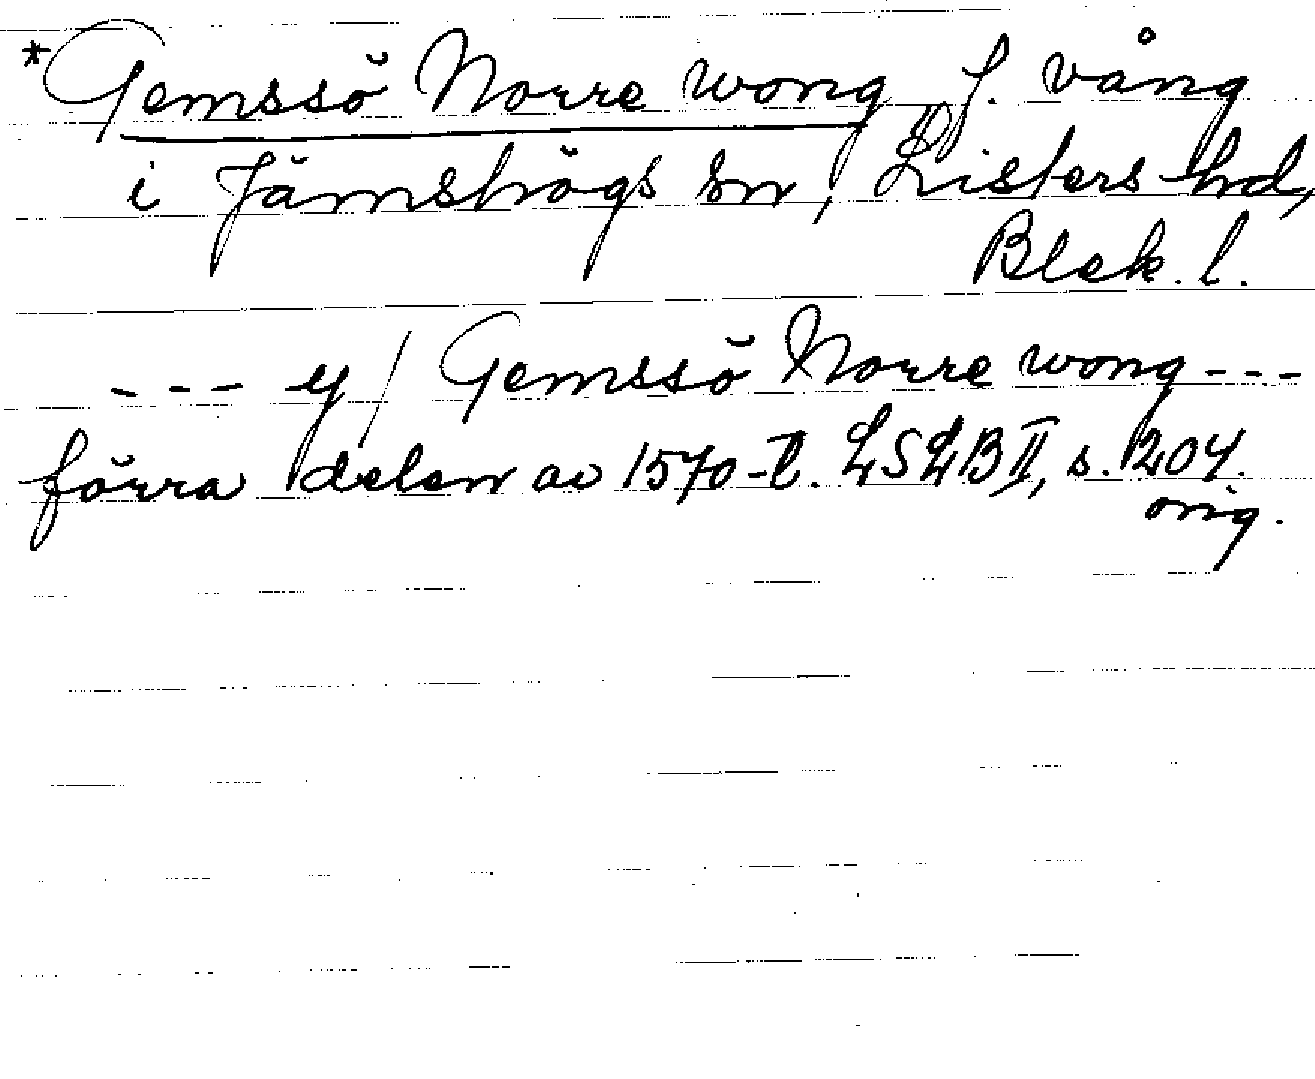 *Gemssö Norre wong f. vång
i Jämshögs sn, Listers hd,
Blek. l.
--- y/ Gemssö Norre wong ---
förra delen av 1570-t. LSLB II, s. 204.
orig.